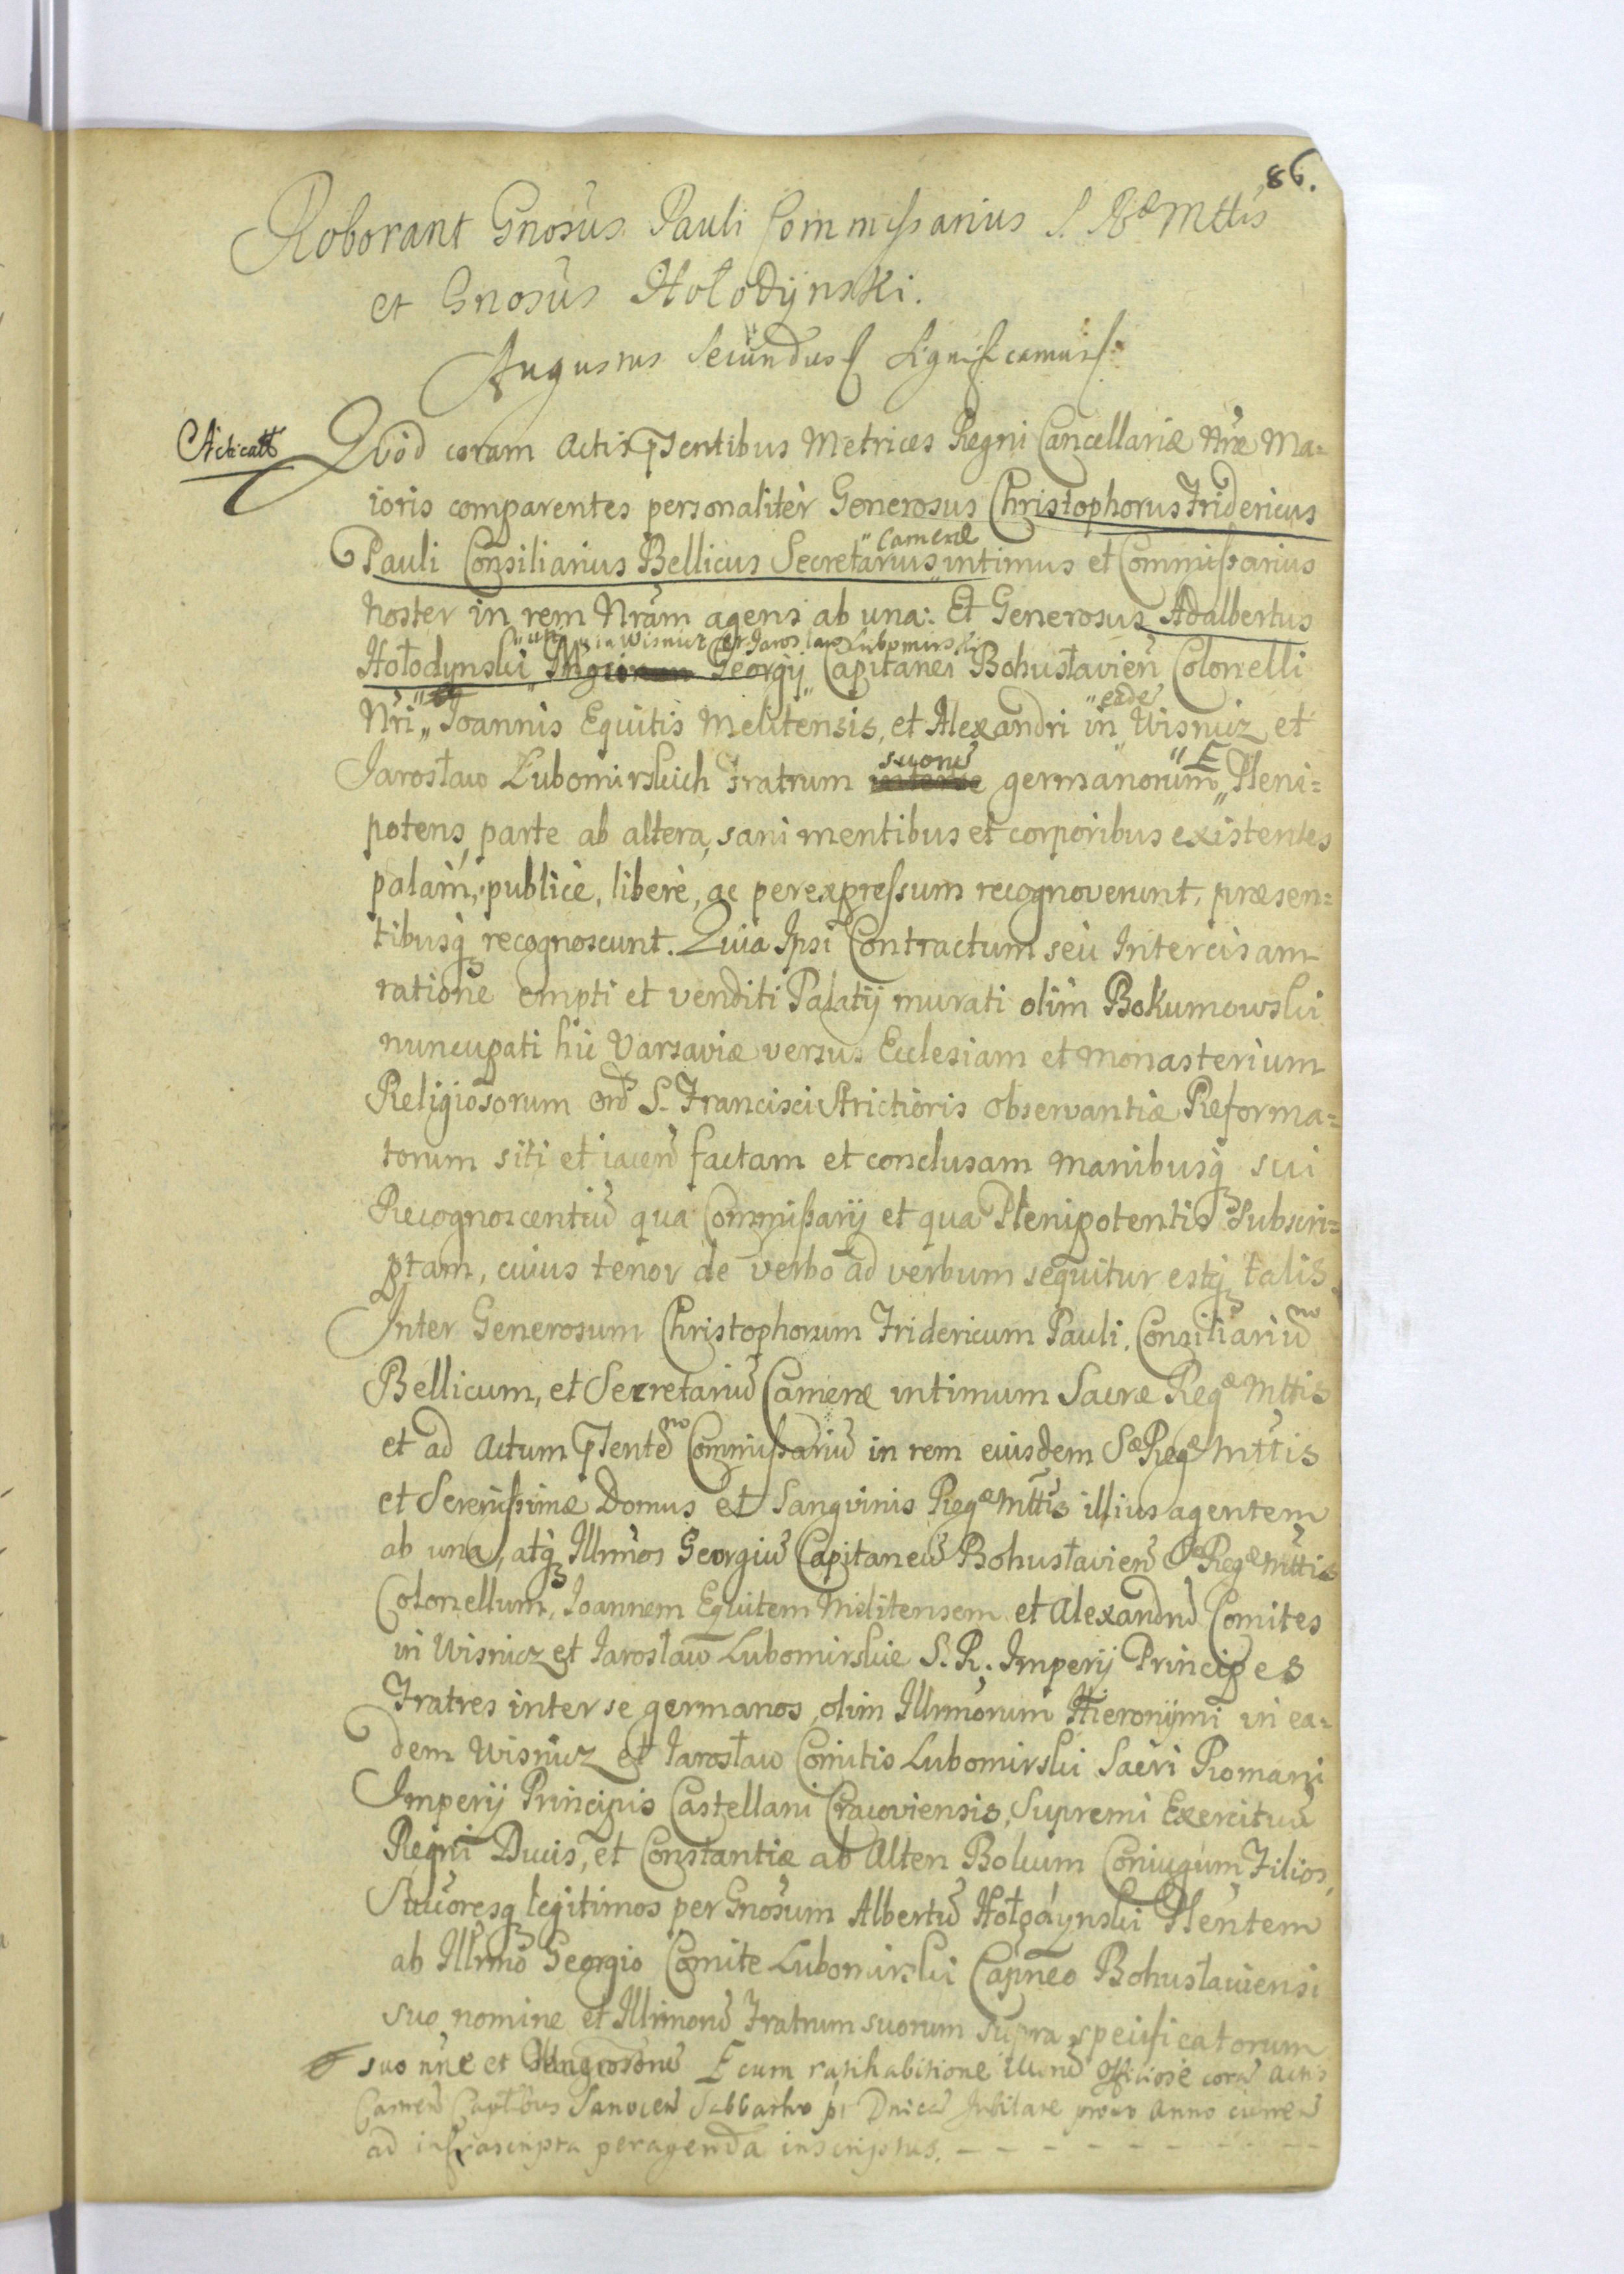 86.
Roborant Gnosus Pauli Commissarius S. Rae Mttis
et Gnosus Hołodynski.
Augustus Secundus Significamus
Acticatt
Quod coram Actis pntibus Metrices Regni Cancellariæ Nræ Ma=
ioris comparentes personaliter Generosus Christophorus Fridericus
Cameræ
Pauli Consiliarius Bellicus Secretarius intimus et Commissarius
Noster in rem Nram agens ab una: Et Generosus Adalbertus
in Wisnicz et Jarosław Lubomirski
Hołodynski Georgÿ Capitanei Bohusłavien Colonelli
eade
Nri Joannis Equitis Melitensis, et Alexandri in Wisnicz et
suoru
Jarosław Lubomirskich Fratrum germanorum Pleni=
potens, parte ab altera, sani mentibus et corporibus existentes
palam, publicè, liberè, ac per expressum recognoverunt, præsen=
tibusq recognoscunt. Quia Ipsi Contractum seu Intercisam
ratione empti et venditi Palatÿ murati olim Bokumowski
nuncupati hic Varsaviæ versus Ecclesiam et Monasterium
Religiosorum Ord S. Francisci strictioris observantiæ Reforma=
torum siti et iacen factam et conclusam manibusq sui
Recognoscentiu qua Commissarÿ et qua Plenipotentis Subscri=
ptam, cuius tenor de verbo ad verbum sequitur estq talis.
Inter Generosum Christophorum Fridericum Pauli, Consiliariu
Bellicum, et Secretariu Cameræ intimum Sacræ Regæ Mttis
et ad Actum pnte Commissariu in rem eiusdem Sæ Regæ Mttis
et Serenissimæ Domus et Sangvinis Regæ Mttis illius agentem
ab una, atq Illrmos Georgiu Capitaneu Bohusłavien Sæ Regæ Mttis
Colonellum, Joannem Equitem Militensem et Alexandru Comites
in Wisnicz et Jarosław Lubomirskie S. R. Imperÿ Principes
Fratres inter se germanos, olim Illrmorum Hieronymi in ea=
dem Wisnicz et Jarosław Comitis Lubomirski Sacri Romani
Imperÿ Principis Castellani Cracoviensis, Supremi Exercituu
Regni Ducis, et Constantiæ ab Alten Bokum Coniugum Filios,
Succoresq legitimos per Gnosum Albertu Hołodynski Plentem
ab Illrmo Georgio Comite Lubomirski Capneo Bohusłaviensi
suo nomine et Illrmoru Fratrum suorum supra specificatorum
suo nne et cum ratihabitione officiose cora Actis
Sanocen Sabbatho Dnica Jubilate anno curren
ad infrascripta peragenda inscriptus. — — — — — — —